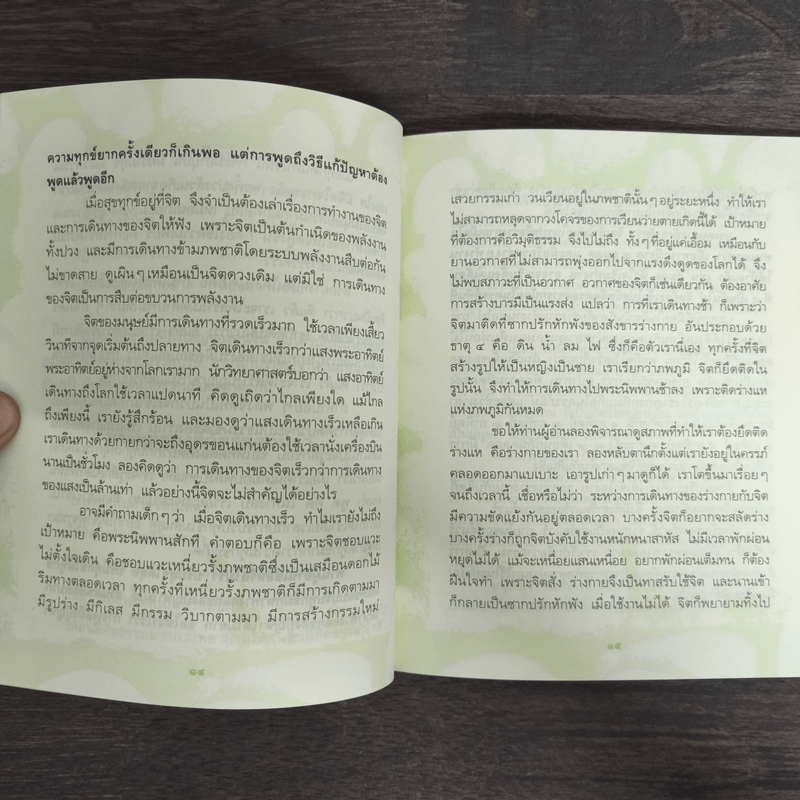 ความทุกข์ยากครั้งเดียวก็เกินพอ แต่การพูดถึงวิธีแก้ปัญหาต้อง
พูดแล้วพูดอีก
เมื่อสุขทุกข์อยู่ที่จิต จึงจำเป็นต้องเล่าเรื่องการทำงานของจิต
และการเดินทางของจิตให้ฟัง เพราะจิตเป็นต้นกำเนิดของพลังงาน
ทั้งปวง และมีการเดินทางข้ามภพชาติโดยระบบพลังงานสืบต่อกัน
ไม่ขาดสาย ดูเผินๆ เหมือนเป็นจิตดวงเดิม แต่มิใช่ การเดินทาง
ของจิตเป็นการสืบต่อขบวนการพลังงาน
จิตของมนุษย์มีการเดินทางที่รวดเร็วมาก ใช้เวลาเพียงเสี้ยว
วินาทีจากจุดเริ่มต้นถึงปลายทาง จิตเดินทางเร็วกว่าแสงพระอาทิตย์
พระอาทิตย์อยู่ห่างจากโลกเรามาก นักวิทยาศาสตร์บอกว่า แสงอาทิตย์
เดินทางถึงโลกใช้เวลาแปดนาที คิดดูเถิดว่าไกลเพียงใด แม้ไกล
ถึงเพียงนี้ เรายังรู้สึกร้อน และมองดูว่าแสงเดินทางเร็วเหลือเกิน
เราเดินทางด้วยกายกว่าจะถึงอุดรขอนแก่นต้องใช้เวลานั่งเครื่องบิน
นานเป็นชั่วโมง ลองคิดดูว่า การเดินทางของจิตเร็วกว่าการเดินทาง
ของแสงเป็นล้านเท่า แล้วอย่างนี้จิตจะไม่สำคัญได้อย่างไร
อาจมีคำถามเด็กๆ ว่า เมื่อจิตเดินทางเร็ว ทำไมเรายังไม่ถึง
เป้าหมาย คือพระนิพพานสักที คำตอบก็คือ เพราะจิตชอบแวะ
ไม่ตั้งใจเดิน คือชอบแวะเหนี่ยวรั้งภพชาติซึ่งเป็นเสมือนดอกไม้
ริมทางตลอดเวลา ทุกครั้งที่เหนี่ยวรั้งภพชาติก็มีการเกิดตามมา
มีรูปร่าง มีกิเลส มีกรรม วิบากตามมา มีการสร้างกรรมใหม่
๑๔
เสวยกรรมเก่า วนเวียนอยู่ในภพชาตินั้นๆ อยู่ระยะหนึ่ง ทำให้เรา
ไม่สามารถหลุดจากวงโคจรของการเวียนว่ายตายเกิดนี้ได้ เป้าหมาย
ที่ต้องการคือวิมุติธรรม จึงไปไม่ถึง ทั้งๆ ที่อยู่แค่เอื้อม เหมือนกับ
ยานอวกาศที่ไม่สามารถพุ่งออกไปจากแรงดึงดูดของโลกได้ จึง
ไม่พบสภาวะที่เป็นอวกาศ อวกาศของจิตก็เช่นเดียวกัน ต้องอาศัย
การสร้างบารมีเป็นแรงส่ง แปลว่า การที่เราเดินทางช้า ก็เพราะว่า
จิตมาติดที่ซากปรักหักพังของสังขารร่างกาย อันประกอบด้วย
ธาตุ ๔ คือ ดิน น้ำ ลม ไฟ ซึ่งก็คือตัวเรานี่เอง ทุกครั้งที่จิต
สร้างรูปให้เป็นหญิงเป็นชาย เราเรียกว่าภพภูมิ จิตก็ยึดติดใน
รูปนั้น จึงทำให้การเดินทางไปพระนิพพานช้าลง เพราะติดร่างแห
แห่งภพภูมิกันหมด
ขอให้ท่านผู้อ่านลองพิจารณาดูสภาพที่ทำให้เราต้องยึดติด
ร่างแห คือร่างกายของเรา ลองหลับตานึกตั้งแต่เรายังอยู่ในครรภ์
คลอดออกมาแบเบาะ เอารูปเก่าๆ มาดูก็ได้ เราโตขึ้นมาเรื่อยๆ
จนถึงเวลานี้ เชื่อหรือไม่ว่า ระหว่างการเดินทางของร่างกายกับจิต
มีความขัดแย้งกันอยู่ตลอดเวลา บางครั้งจิตก็อยากจะสลัดร่าง
บางครั้งร่างก็ถูกจิตบังคับใช้งานหนักหนาสาหัส ไม่มีเวลาพักผ่อน
หยุดไม่ได้ แม้จะเหนื่อยแสนเหนื่อย อยากพักผ่อนเต็มทน ก็ต้อง
ฝืนใจทำ เพราะจิตสั่ง ร่างกายจึงเป็นทาสรับใช้จิต และนานเข้า
ก็กลายเป็นซากปรักหักพัง เมื่อใช้งานไม่ได้ จิตก็พยายามทิ้งไป
๑๕